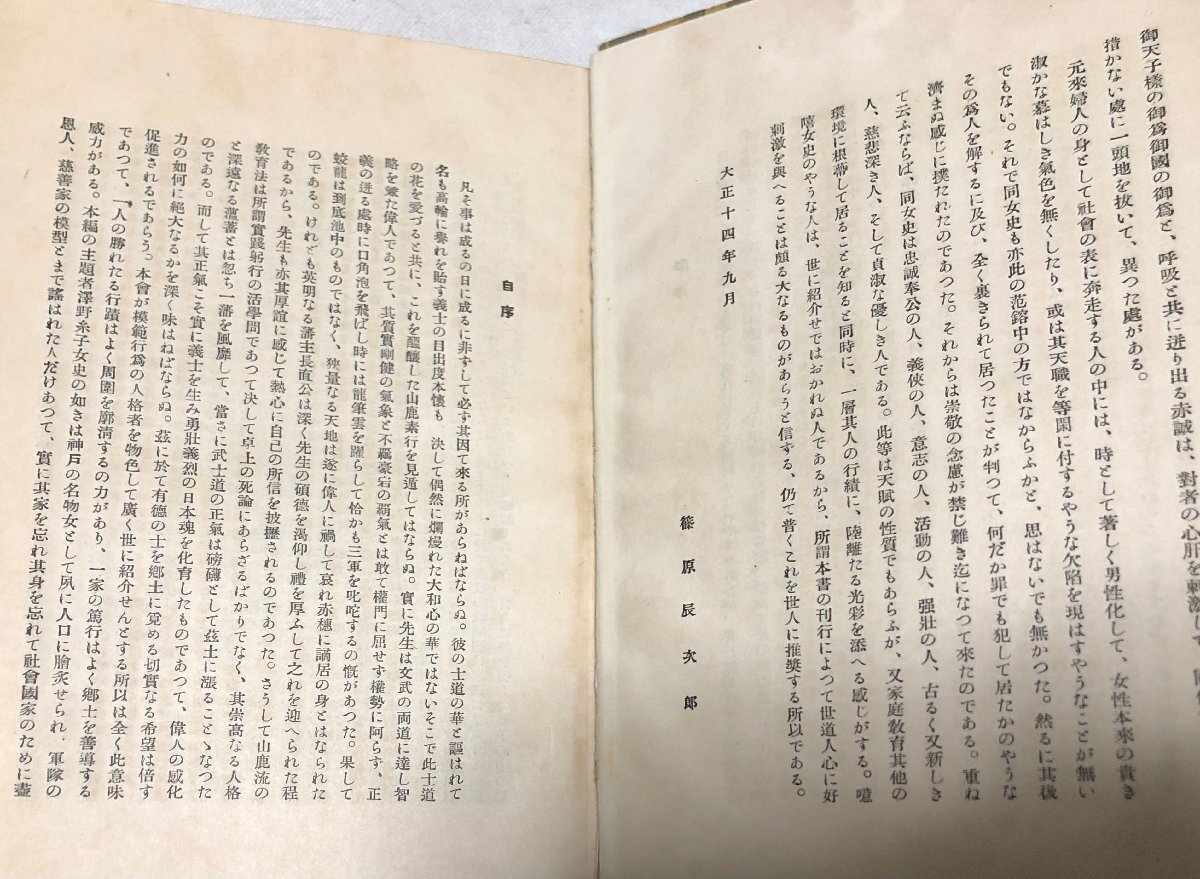 御天子樣の御爲御國の御爲と、呼吸と共に迸り出る赤誠は、對者の心肝を刺激して、
措かない處に一頭地を拔いて、異つた處がある。
元來婦人の身として社會の表に奔走する人の中には、時として著しく男性化して、女性本來の貴き
淑かな慕はしき氣色を無くしたり、或は其天職を等閑に付するやうな欠陷を現はすやうなことが無い
でもない。それで同女史も亦此の范鎔中の方ではなからふかと、思はないでも無かつた。然るに其後
その爲人を解するに及び、全く裏きられて居つたことが判つて、何だか罪でも犯して居たかのやうな
濟まぬ感じに撲たれたのであつた。それからは崇敬の念慮が禁じ難き迄になつて來たのである。重ね
て云ふならば、同女史は忠誠奉公の人、義俠の人、意志の人、活動の人、强壯の人、古るく又新しき
人、慈悲深き人、そして貞淑な優しき人である。此等は天賦の性質でもあらふが、又家庭敎育其他の
環境に根蒂して居ることを知ると同時に、一層其人の行績に、陸離たる光彩を添へる感じがする。噫
嘻女史のやうな人は、世に紹介せではおかれぬ人であるから、所謂本書の刊行によつて世道人心に好
刺激を與へることは頗る大なるものがあらうと信する、仍て普くこれを世人に推奬する所以である。
大正十四年九月
篠原辰次郎
自序
凡そ事は成るの日に成るに非すして必す其因て來る所があらねばならぬ。彼の士道の華と謳はれて
名も高輪に譽れを貽す義士の目出度本懷も 決して偶然に爛熳れた大和心の華ではないそこで此十道
の花を愛づると共に、これを醞釀した山鹿素行を見遁してはならぬ。實に先生は文武の両道に達し智
略を兼た偉人であつて、其質實剛健の氣象と不羈豪宕の覇氣とは敢て權門に屈せす權勢に阿らす、正
義の迸る處時に口角泡を飛ばし時には龍筆雲を躍らして恰かも三軍を叱咤するの慨があつた。果して
蛟龍は到底池中のものではなく、狹量なる天地は遂に偉人に禍して哀れ赤穗に謫居の身とはなられた
のである。けれども英明なる藩主長直公は深く先生の碩德を渴仰し禮を厚ふして之れを迎へられた程
であるから、先生も亦其厚誼に感じて熱心に自己の所信を披攊されるのであつた。さうして山鹿流の
敎育法は所謂實踐躬行の活學問であつて決して卓上の死論にあらざるばかりでなく、其崇高なる人格
と深遠なる薀蓄とは忽ち一藩を風靡して、當さに武士道の正氣は磅礴として玆土に漲ることゝなつた
のである。而して其正氣こそ實に義士を生み勇壯義烈の日本魂を化育したものであつて、偉人の感化
力の如何に絕大なるかを深く味はねばならぬ。玆に於て有德の士を鄕土に覓める切實なる希望は倍す
促進されるであらう。本會が模範行爲の人格者を物色して廣く世に紹介せんとする所以は全く此意味
であつて、一人の勝れたる行蹟はよく周圍を廓淸するの力があり、一家の篤行はよく鄕土を善導する
威力がある。本編の主題者澤野糸子女史の如きは神戶の名物女として夙に人口に膾炙せられ、軍隊の
恩人、慈善家の模型とまで謠はれた人だけあつて、實に其家を忘れ其身を忘れて社會國家のために盡